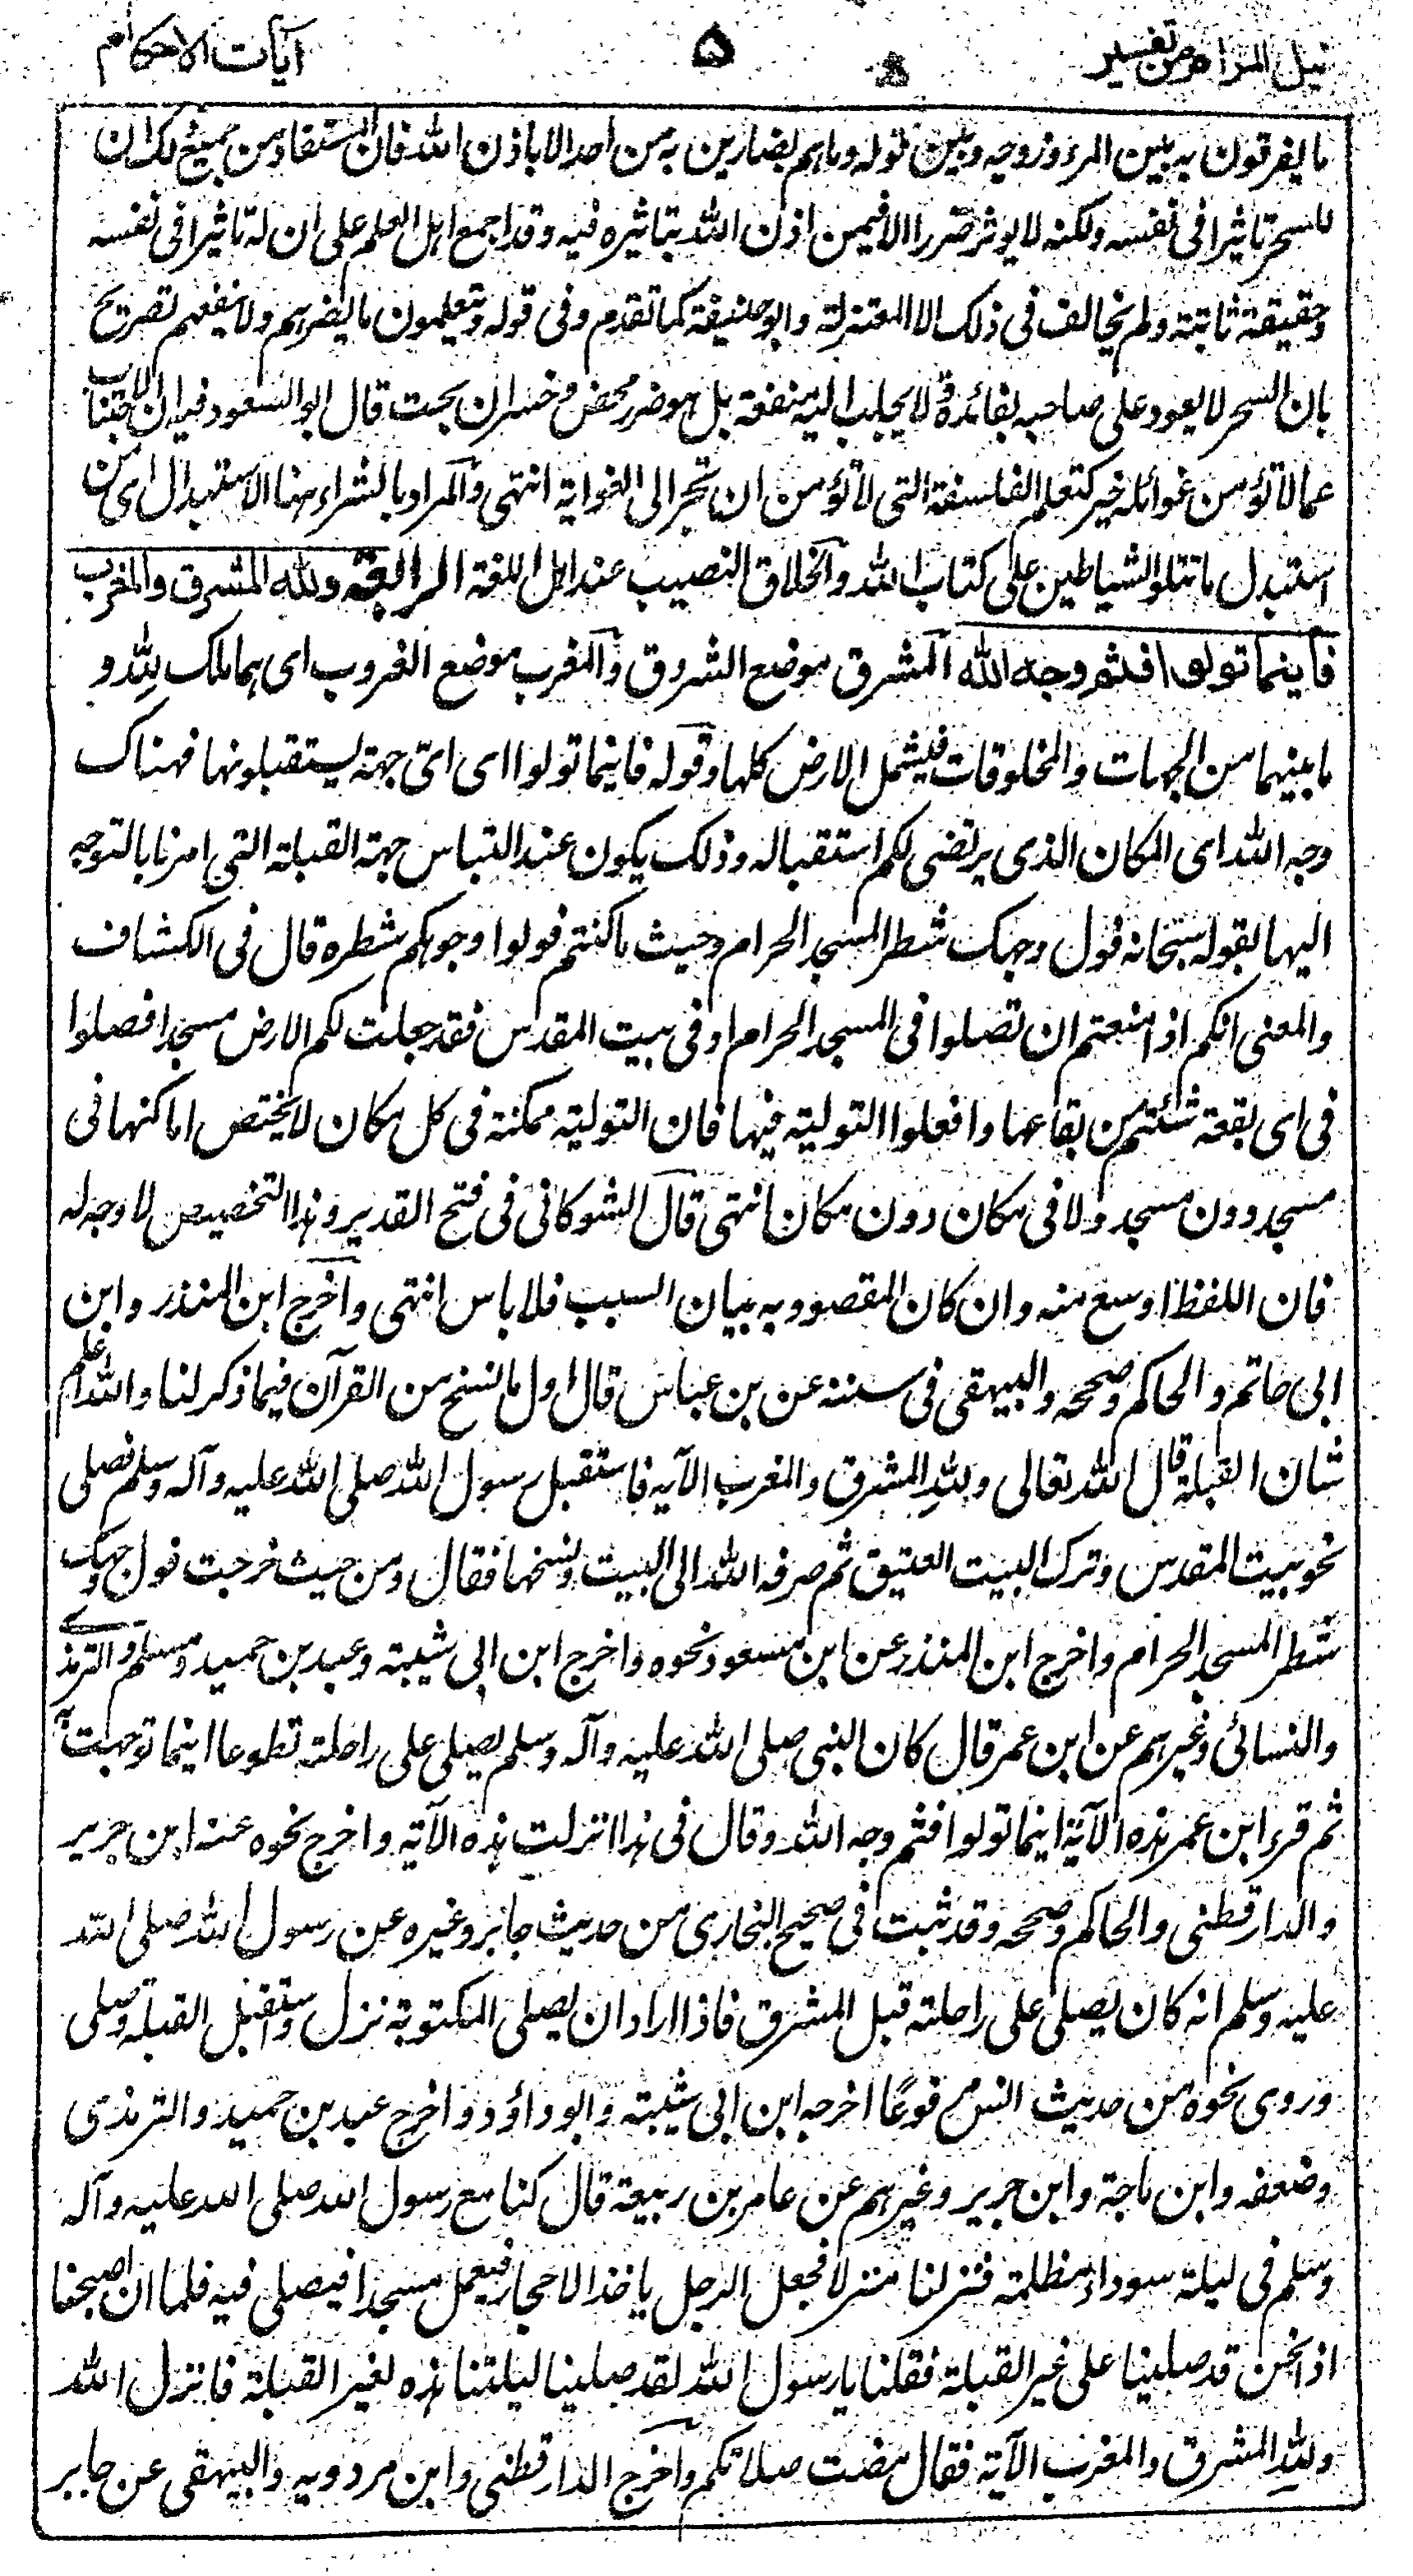 نيل المرام من تفسير ٥ آيات الاحكام
ما يفرقون به بين المرء وزوجه وبين قوله وما هم بضارين به من احد الا باذن الله فان المستفاد من جميع ذلك ان
للسحر تاثيرا فى نفسه ولكنه لا يوثر ضررا الا فيمن اذن الله بتاثيره فيه وقد اجمع اهل العلم على ان له تاثيرا فى نفسه
وحقيقة ثابتة ولم يخالف فى ذلك الا المعتزلة وابو حنيفة كما تقدم وفى قوله ويتعلمون ما يضرهم ولا ينفعهم تصريح
بان السحر لا يعود على صاحبه بفائدة ولا يجلب اليه منفعة بل هو ضرر محض وخسران بحت قال ابو السعود فيه ان الاجتناب
عما لا تؤمن غوائله خير كتعلم الفلسفة التى لا تؤمن ان تجر الى الغواية انتهى والمراد بالشراء هنا الاستبدال اى من
استبدل ما تتلو الشياطين على كتاب الله والخلاق النصيب عند اهل اللغة الرابعة ولله المشرق والمغرب
فاينما تولوا فثم وجه الله المشرق موضع الشروق والمغرب موضع الغروب اى هما ملك لله و
ما بينهما من الجهات والمخلوقات فيشمل الارض كلها وقوله فاينما تولوا اى اىّ جهة يستقبلونها فهناك
وجه الله اى المكان الذى يرتضى لكم استقباله وذلك يكون عند التباس جهة القبلة التى امرنا بالتوجه
اليها بقوله سبحانه فول وجهك شطر المسجد الحرام وحيث ما كنتم فولوا وجوهكم شطره قال فى الكشاف
والمعنى انكم اذا منعتم ان تصلوا فى المسجد الحرام او فى بيت المقدس فقد جعلت لكم الارض مسجدا فصلوا
فى اى بقعة شئتم من بقاعها وافعلوا التولية فيها فان التولية ممكنة فى كل مكان لا يختص اماكنها فى
مسجد دون مسجد ولا فى مكان دون مكان انتهى قال الشوكانى فى فتح القدير وهذا التخصيص لا وجه له
فان اللفظ اوسع منه وان كان المقصود به بيان السبب فلا باس انتهى واخرج ابن المنذر وابن
ابى حاتم والحاكم وصححه والبيهقى فى سننه عن بن عباس قال اول ما نسخ من القرآن فيما ذكر لنا والله اعلم
شان القبلة قال الله تعالى ولله المشرق والمغرب الآيه فاستقبل رسول الله صلى الله عليه وآله وسلم فصلى
نحو بيت المقدس وترك البيت العتيق ثم صرفه الله الى البيت ونسخها فقال ومن حيث خرجت فول وجهك
شطر المسجد الحرام واخرج ابن المنذر عن ابن مسعود نحوه واخرج ابن ابى شيبة وعبد بن حميد ومسلم والترمذى
والنسائى وغيرهم عن ابن عمر قال كان النبى صلى الله عليه وآله وسلم يصلى على راحلته تطوعا اينما توجهت به
ثم قرء ابن عمر هذه الآية اينما تولوا فثم وجه الله وقال فى هذا انزلت هذه الآية واخرج نحوه عنه ابن جرير
والدارقطنى والحاكم وصححه وقد ثبت فى صحيح البخارى من حديث جابر وغيره عن رسول الله صلى الله
عليه وسلم انه كان يصلى على راحلته قبل المشرق فاذا اراد ان يصلى المكتوبة نزل واستقبل القبلة وصلى
وروى نحوه من حديث انس مرفوعًا اخرجه ابن ابى شيبة وابو داؤد واخرج عبد بن حميد والترمذى
وضعفه وابن ماجة وابن جرير وغيرهم عن عامر بن ربيعة قال كنا مع رسول الله صلى الله عليه وآله
وسلم فى ليلة سوداء مظلمة فنزلنا منزلا فجعل الرجل ياخذ الاحجار فيعمل مسجدا فيصلى فيه فلما ان اصبحنا
اذا نحن قد صلينا على غير القبلة فقلنا يا رسول الله لقد صلينا ليلتنا هذه لغير القبلة فانزل الله
ولله المشرق والمغرب الآية فقال مضت صلاتكم واخرج الدارقطنى وابن مردويه والبيهقى عن جابر